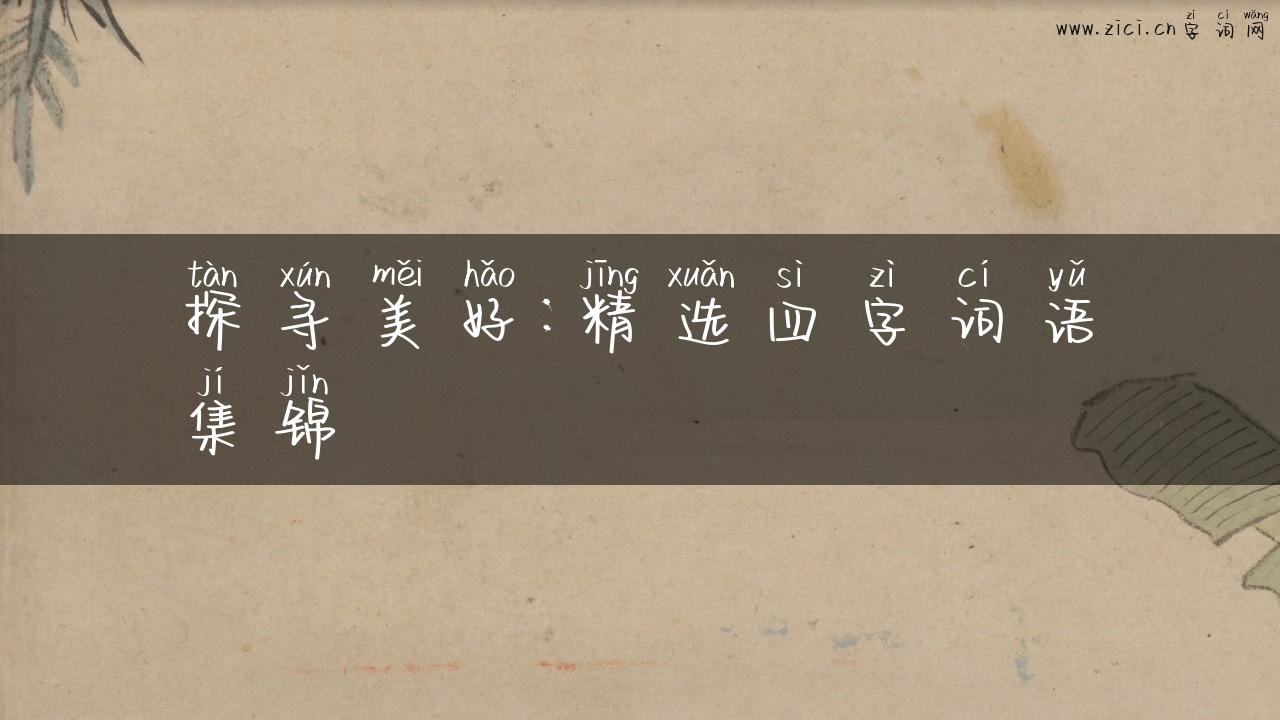 zì cí wǎng
www.zici.cn 字词网
tàn xún měi hǎo jīng xuǎn sì zì cí yǔ
探寻美好：精选四字词语
jí jǐn
集锦